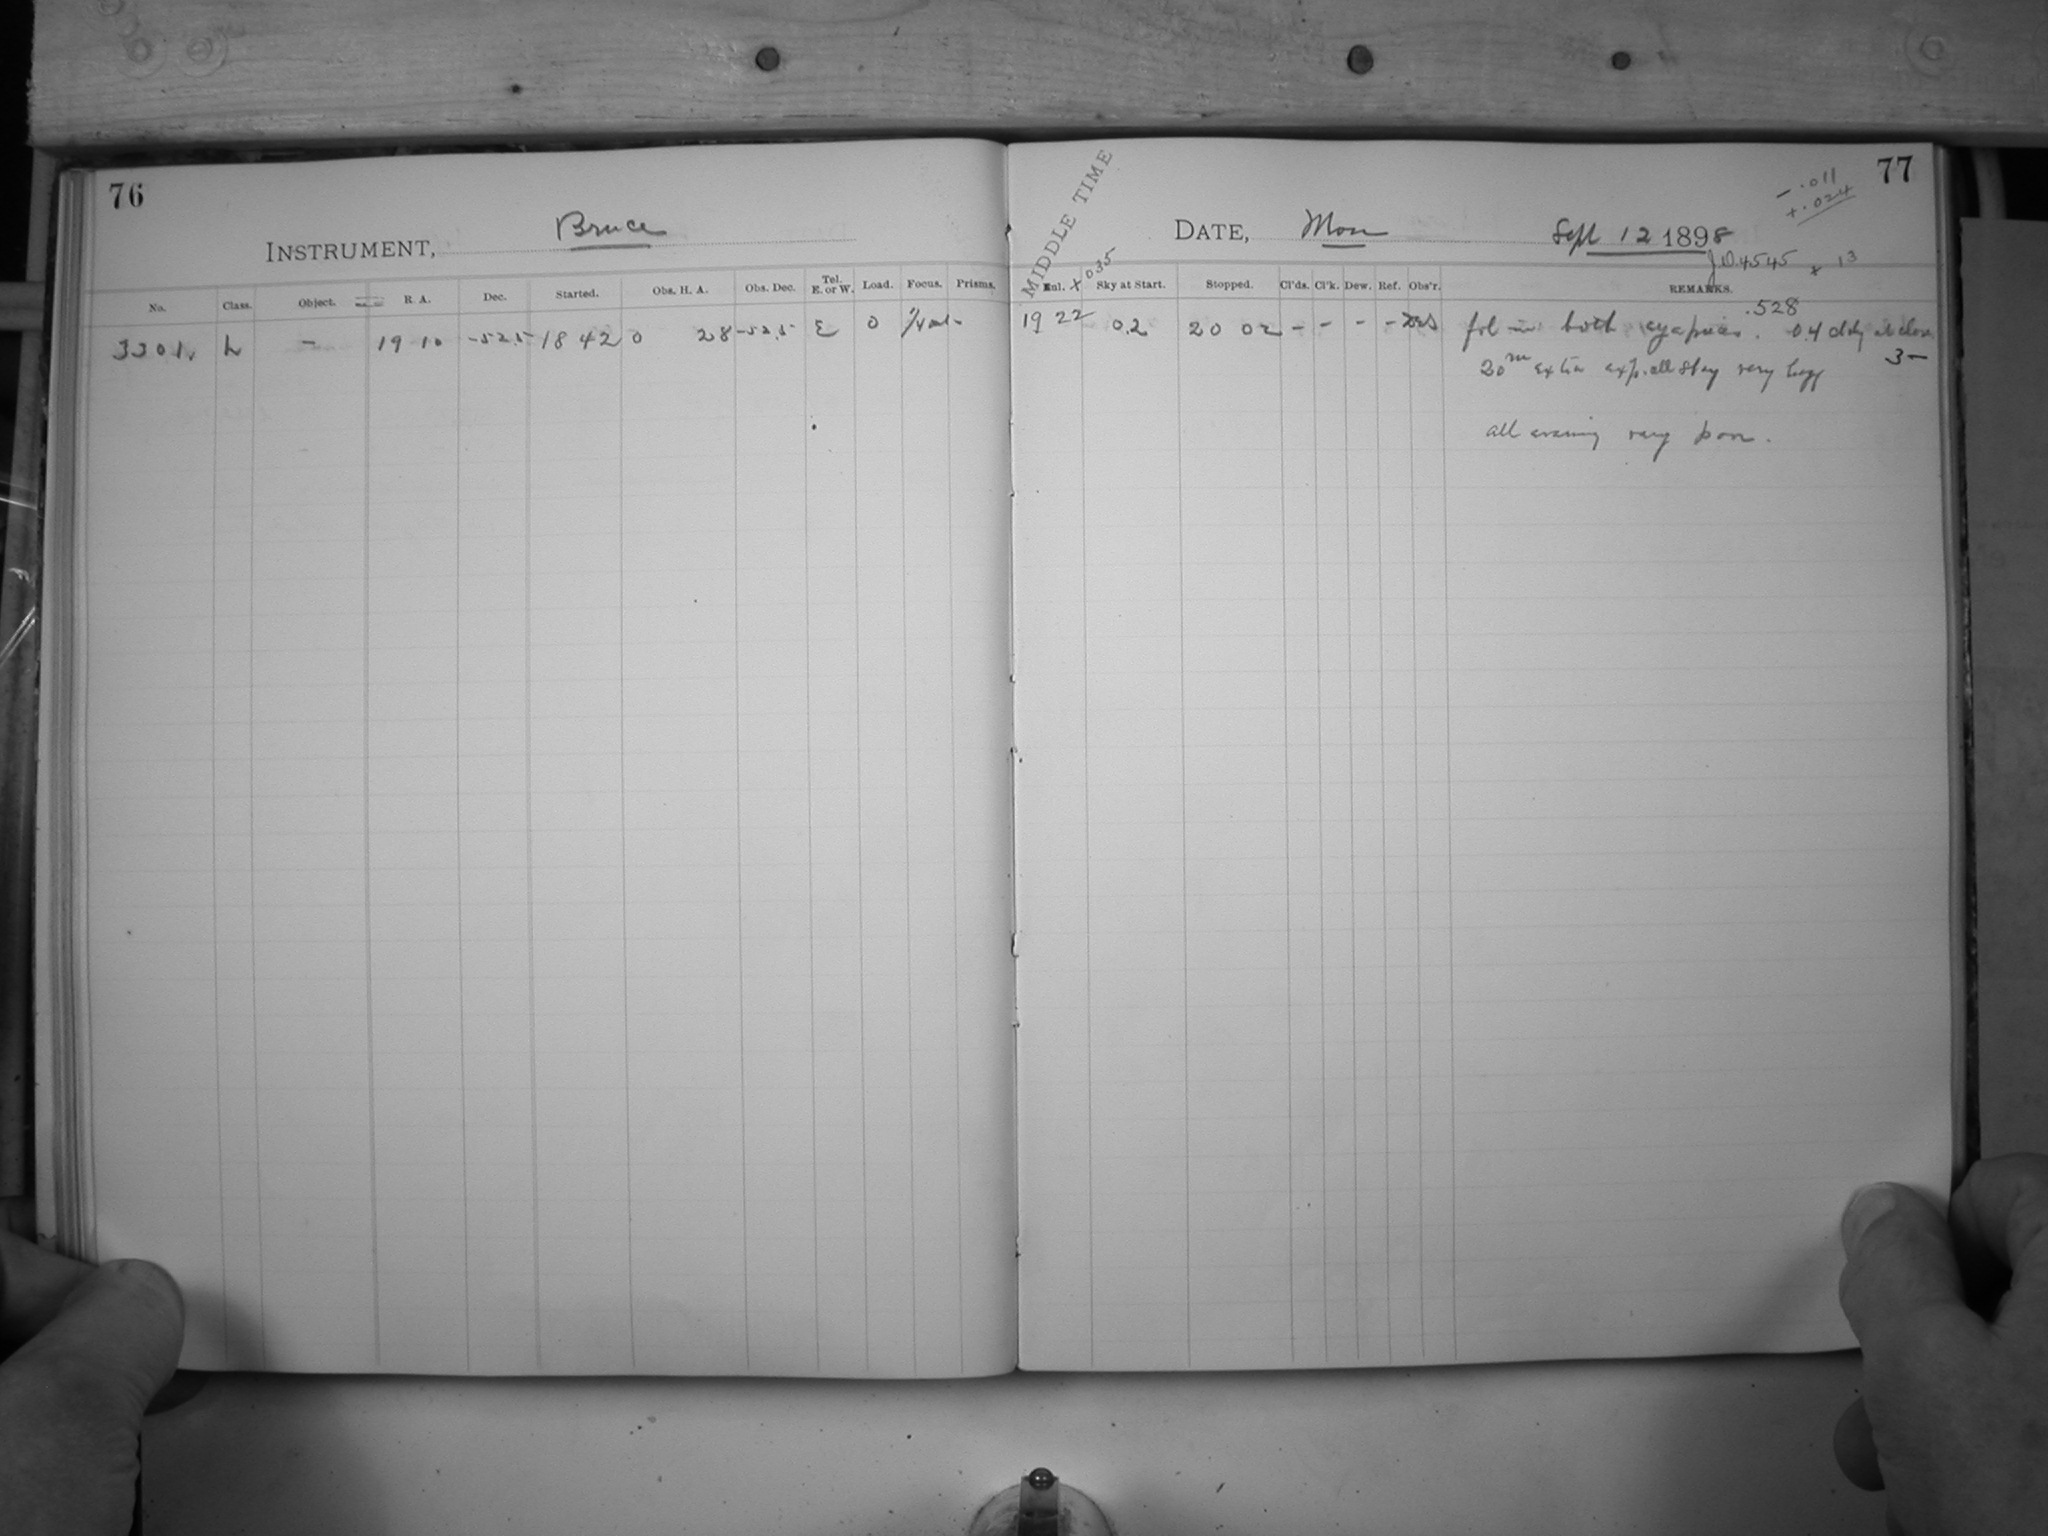 76
INSTRUMENT, Bruce
No. Class. Object. R. A. Dec. Started. Obs. H. A. Obs. Dec. Tel. E. or W. Load. Focus. Prisms.
3301 L – 19 10 -52.5 18 42 0 28 -52.5 E 0
77
-.011
+.024
MIDDLE TIME
DATE, Mon Sept 12 1898
J.D. 4545 + 13
Enl. x 035 Sky at Start. Stopped. Cl'ds. Cl'k. Dew. Ref. Obs'r. REMARKS.
.528
19 22 0.2 20 02 – – – – fol in both eyepieces. 0.4 at close
20m extra exp. all stay very 3–
all evening very poor.